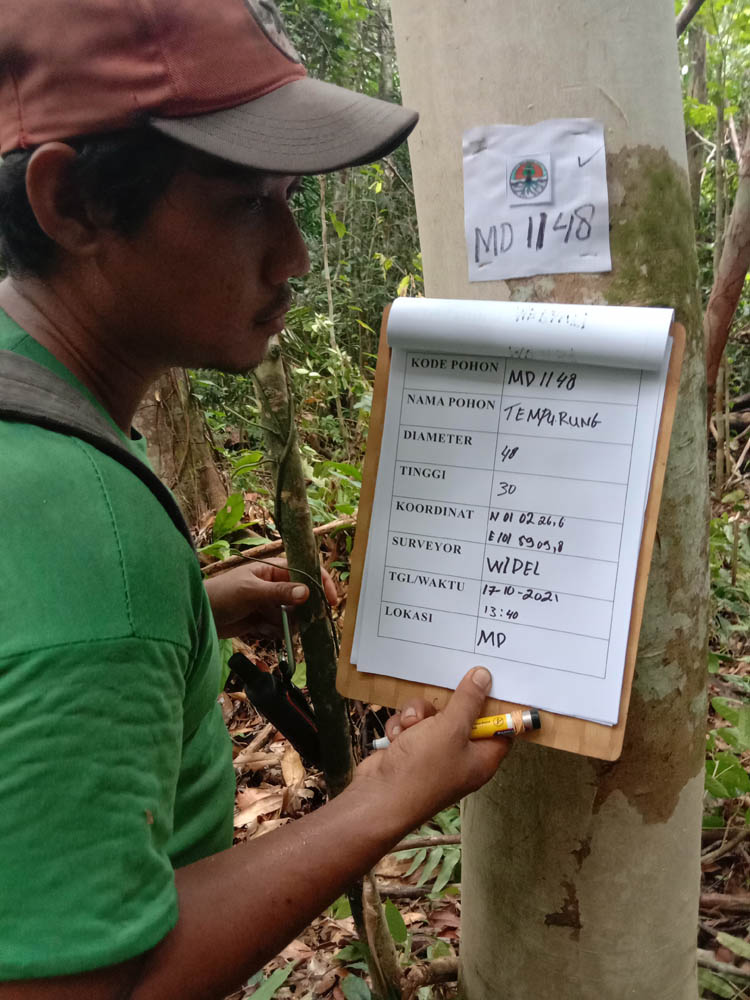 MD 1148
KODE POHON MD 1148
NAMA POHON TEMPURUNG
DIAMETER 48
TINGGI 30
KOORDINAT N 01 02 26,6
E 101 59 09,8
SURVEYOR WIDEL
TGL/WAKTU 17-10-2021
13:40
LOKASI MD